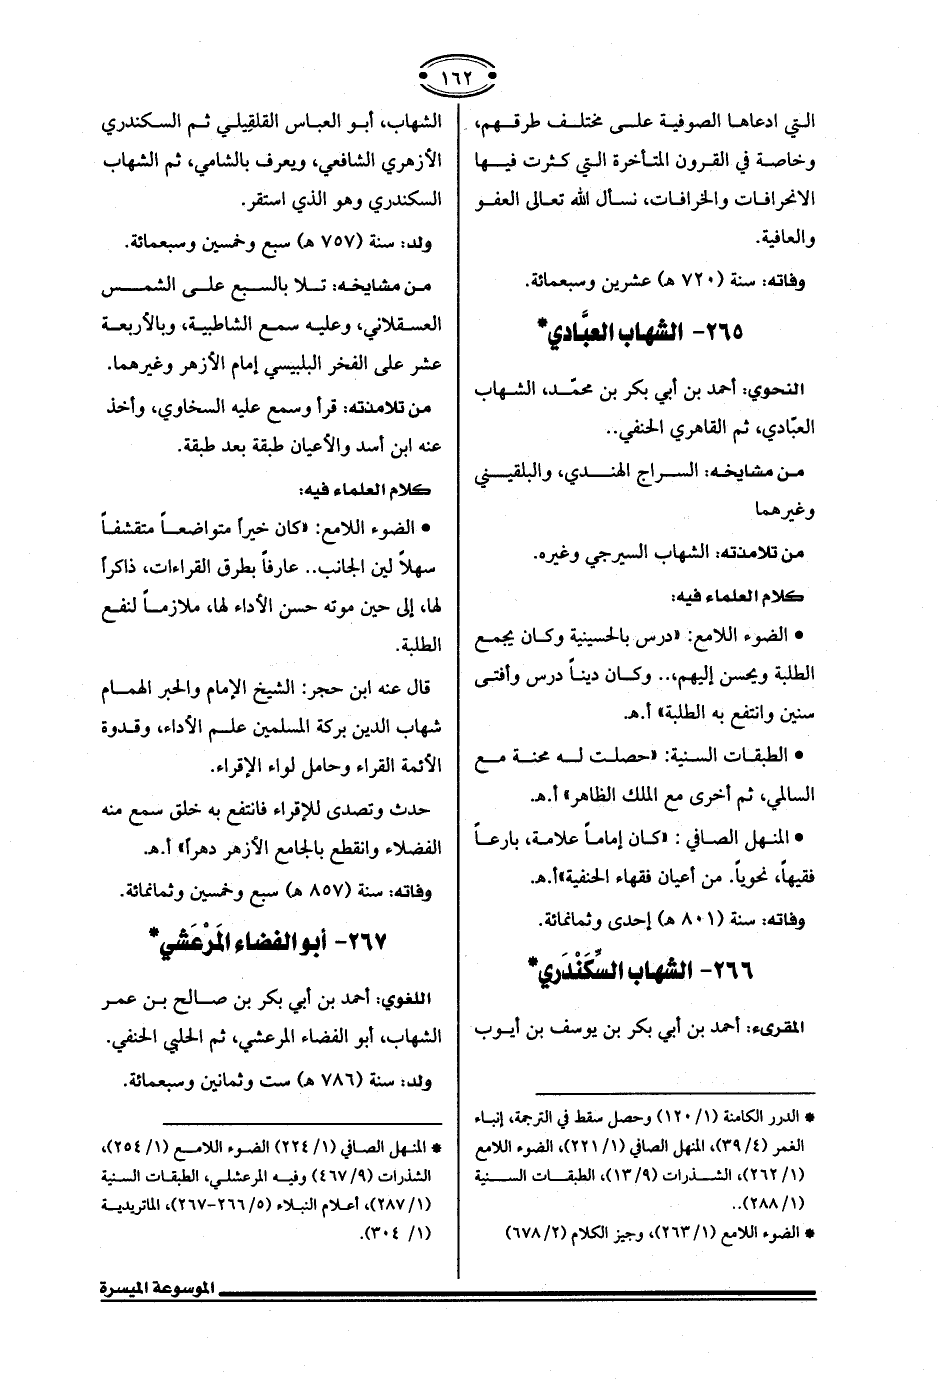 ١٦٢
التي ادعاها الصوفية على مختلف طرقهم،
وخاصة في القرون المتأخرة التي كثرت فيها
الانحرافات والخرافات، نسأل الله تعالى العفو
والعافية.
وفاته: سنة (٧٢٠ هـ) عشرين وسبعمائة.
٢٦٥- الشهاب العبَّادي*
النحوي: أحمد بن أبي بكر بن محمّد، الشهاب
العبّادي، ثم القاهري الحنفي..
من مشايخه: السراج الهندي، والبلقيني
وغيرهما
من تلامذته: الشهاب السيرجي وغيره.
كلام العلماء فيه:
• الضوء اللامع: «درس بالحسينية وكان يجمع
الطلبة ويحسن إليهم،.. وكان ديناً درس وأفتى
سنين وانتفع به الطلبة» أ.هـ.
• الطبقات السنية: «حصلت له محنة مع
السالمي، ثم أخرى مع الملك الظاهر» أ.هـ.
• المنهل الصافي: «كان إماماً علامة، بارعاً
فقيهاً، نحوياً. من أعيان فقهاء الحنفية»أ.هـ.
وفاته: سنة (٨٠١ هـ) إحدى وثمانمائة.
٢٦٦- الشهاب السِّكَنْدَري*
المقرىء: أحمد بن أبي بكر بن يوسف بن أيوب
* الدرر الكامنة (١/ ١٢٠) وحصل سقط في الترجمة، إنباء
الغمر (٤/ ٣٩)، المنهل الصافي (١/ ٢٢١)، الضوء اللامع
(١/ ٢٦٢)، الشذرات (٩/ ١٣)، الطبقات السنية
(١/ ٢٨٨)..
* الضوء اللامع (١/ ٢٦٣)، وجيز الكلام (٢/ ٦٧٨)
الشهاب، أبو العباس القلقيلي ثم السكندري
الأزهري الشافعي، ويعرف بالشامي، ثم الشهاب
السكندري وهو الذي استقر.
ولد: سنة (٧٥٧ هـ) سبع وخمسين وسبعمائة.
من مشايخه: تلا بالسبع على الشمس
العسقلاني، وعليه سمع الشاطبية، وبالأربعة
عشر على الفخر البلبيسي إمام الأزهر وغيرهما.
من تلامذته: قرأ وسمع عليه السخاوي، وأخذ
عنه ابن أسد والأعيان طبقة بعد طبقة.
كلام العلماء فيه:
• الضوء اللامع: «كان خيراً متواضعاً متقشفاً
سهلاً لين الجانب.. عارفاً بطرق القراءات، ذاكراً
لها، إلى حين موته حسن الأداء لها، ملازماً لنفع
الطلبة.
قال عنه ابن حجر: الشيخ الإمام والحبر الهمام
شهاب الدين بركة المسلمين علم الأداء، وقدوة
الأئمة القراء وحامل لواء الإقراء.
حدث وتصدى للإقراء فانتفع به خلق سمع منه
الفضلاء وانقطع بالجامع الأزهر دهراً» أ.هـ.
وفاته: سنة (٨٥٧ هـ) سبع وخمسين وثمانمائة.
٢٦٧- أبو الفضاء المَرْعَشي*
اللغوي: أحمد بن أبي بكر بن صالح بن عمر
الشهاب، أبو الفضاء المرعشي، ثم الحلبي الحنفي.
ولد: سنة (٧٨٦ هـ) ست وثمانين وسبعمائة.
* المنهل الصافي (١/ ٢٢٤) الضوء اللامع (١/ ٢٥٤)،
الشذرات (٩/ ٤٦٧) وفيه المرعشلي، الطبقات السنية
(١/ ٢٨٧)، أعلام النبلاء (٥/ ٢٦٦-٢٦٧)، الماتريدية
(١/ ٣٠٤).
الموسوعة الميسرة